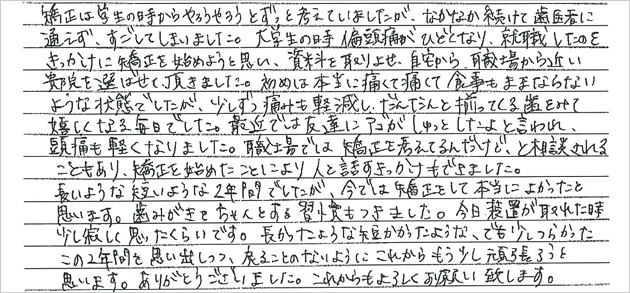 矯正は学生の時からやろうやろうとずっと考えていましたが、なかなか続けて歯医者に
通えず、すごしてしまいました。大学生の時偏頭痛がひどくなり、就職したのを
きっかけに矯正を始めようと思い、資料を取りよせ、自宅から、職場から近い
貴院を選ばせて頂きました。初めは本当に痛くて痛くて食事もままならない
ような状態でしたが、少しずつ痛みも軽減し、だんだんと揃ってくる歯をみて
嬉しくなる毎日でした。最近では友達にアゴがしゅっとしたよと言われ、
頭痛も軽くなりました。職場では矯正を考えてるんだけど、と相談される
こともあり、矯正を始めたことにより人と話すきっかけもできました。
長いような短いような2年間でしたが、今では矯正をして本当によかったと
思います。歯みがきをちゃんとする習慣もつきました。今日装置が取れた時
少し寂しく思ったくらいです。長かったような短かったような、でも少しつらかった
この2年間を思い出しつつ、戻ることのないようにこれからもう少し頑張ろうと
思います。ありがとうございました。これからもよろしくお願い致します。